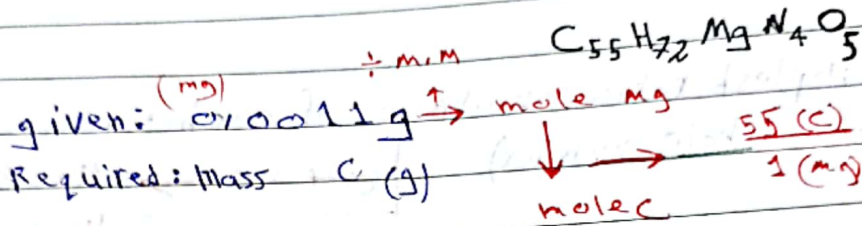 C₅₅H₇₂MgN₄O₅
÷ M.M
given: (mg) 0,0011g → mole Mg
Required: Mass C (g)
55 (C)
1 (mg)
mole C